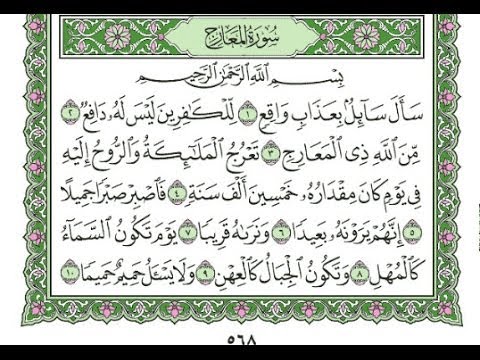 سُورَةُ المَعَارِجِ
بِسْمِ ٱللَّهِ ٱلرَّحْمَٰنِ ٱلرَّحِيمِ
سَأَلَ سَآئِلٌۢ بِعَذَابٍ وَاقِعٍ ١ لِّلْكَٰفِرِينَ لَيْسَ لَهُۥ دَافِعٌ ٢
مِّنَ ٱللَّهِ ذِى ٱلْمَعَارِجِ ٣ تَعْرُجُ ٱلْمَلَٰٓئِكَةُ وَٱلرُّوحُ إِلَيْهِ
فِى يَوْمٍ كَانَ مِقْدَارُهُۥ خَمْسِينَ أَلْفَ سَنَةٍ ٤ فَٱصْبِرْ صَبْرًا جَمِيلًا
٥ إِنَّهُمْ يَرَوْنَهُۥ بَعِيدًا ٦ وَنَرَىٰهُ قَرِيبًا ٧ يَوْمَ تَكُونُ ٱلسَّمَآءُ
كَٱلْمُهْلِ ٨ وَتَكُونُ ٱلْجِبَالُ كَٱلْعِهْنِ ٩ وَلَا يَسْـَٔلُ حَمِيمٌ حَمِيمًا ١٠
٥٦٨